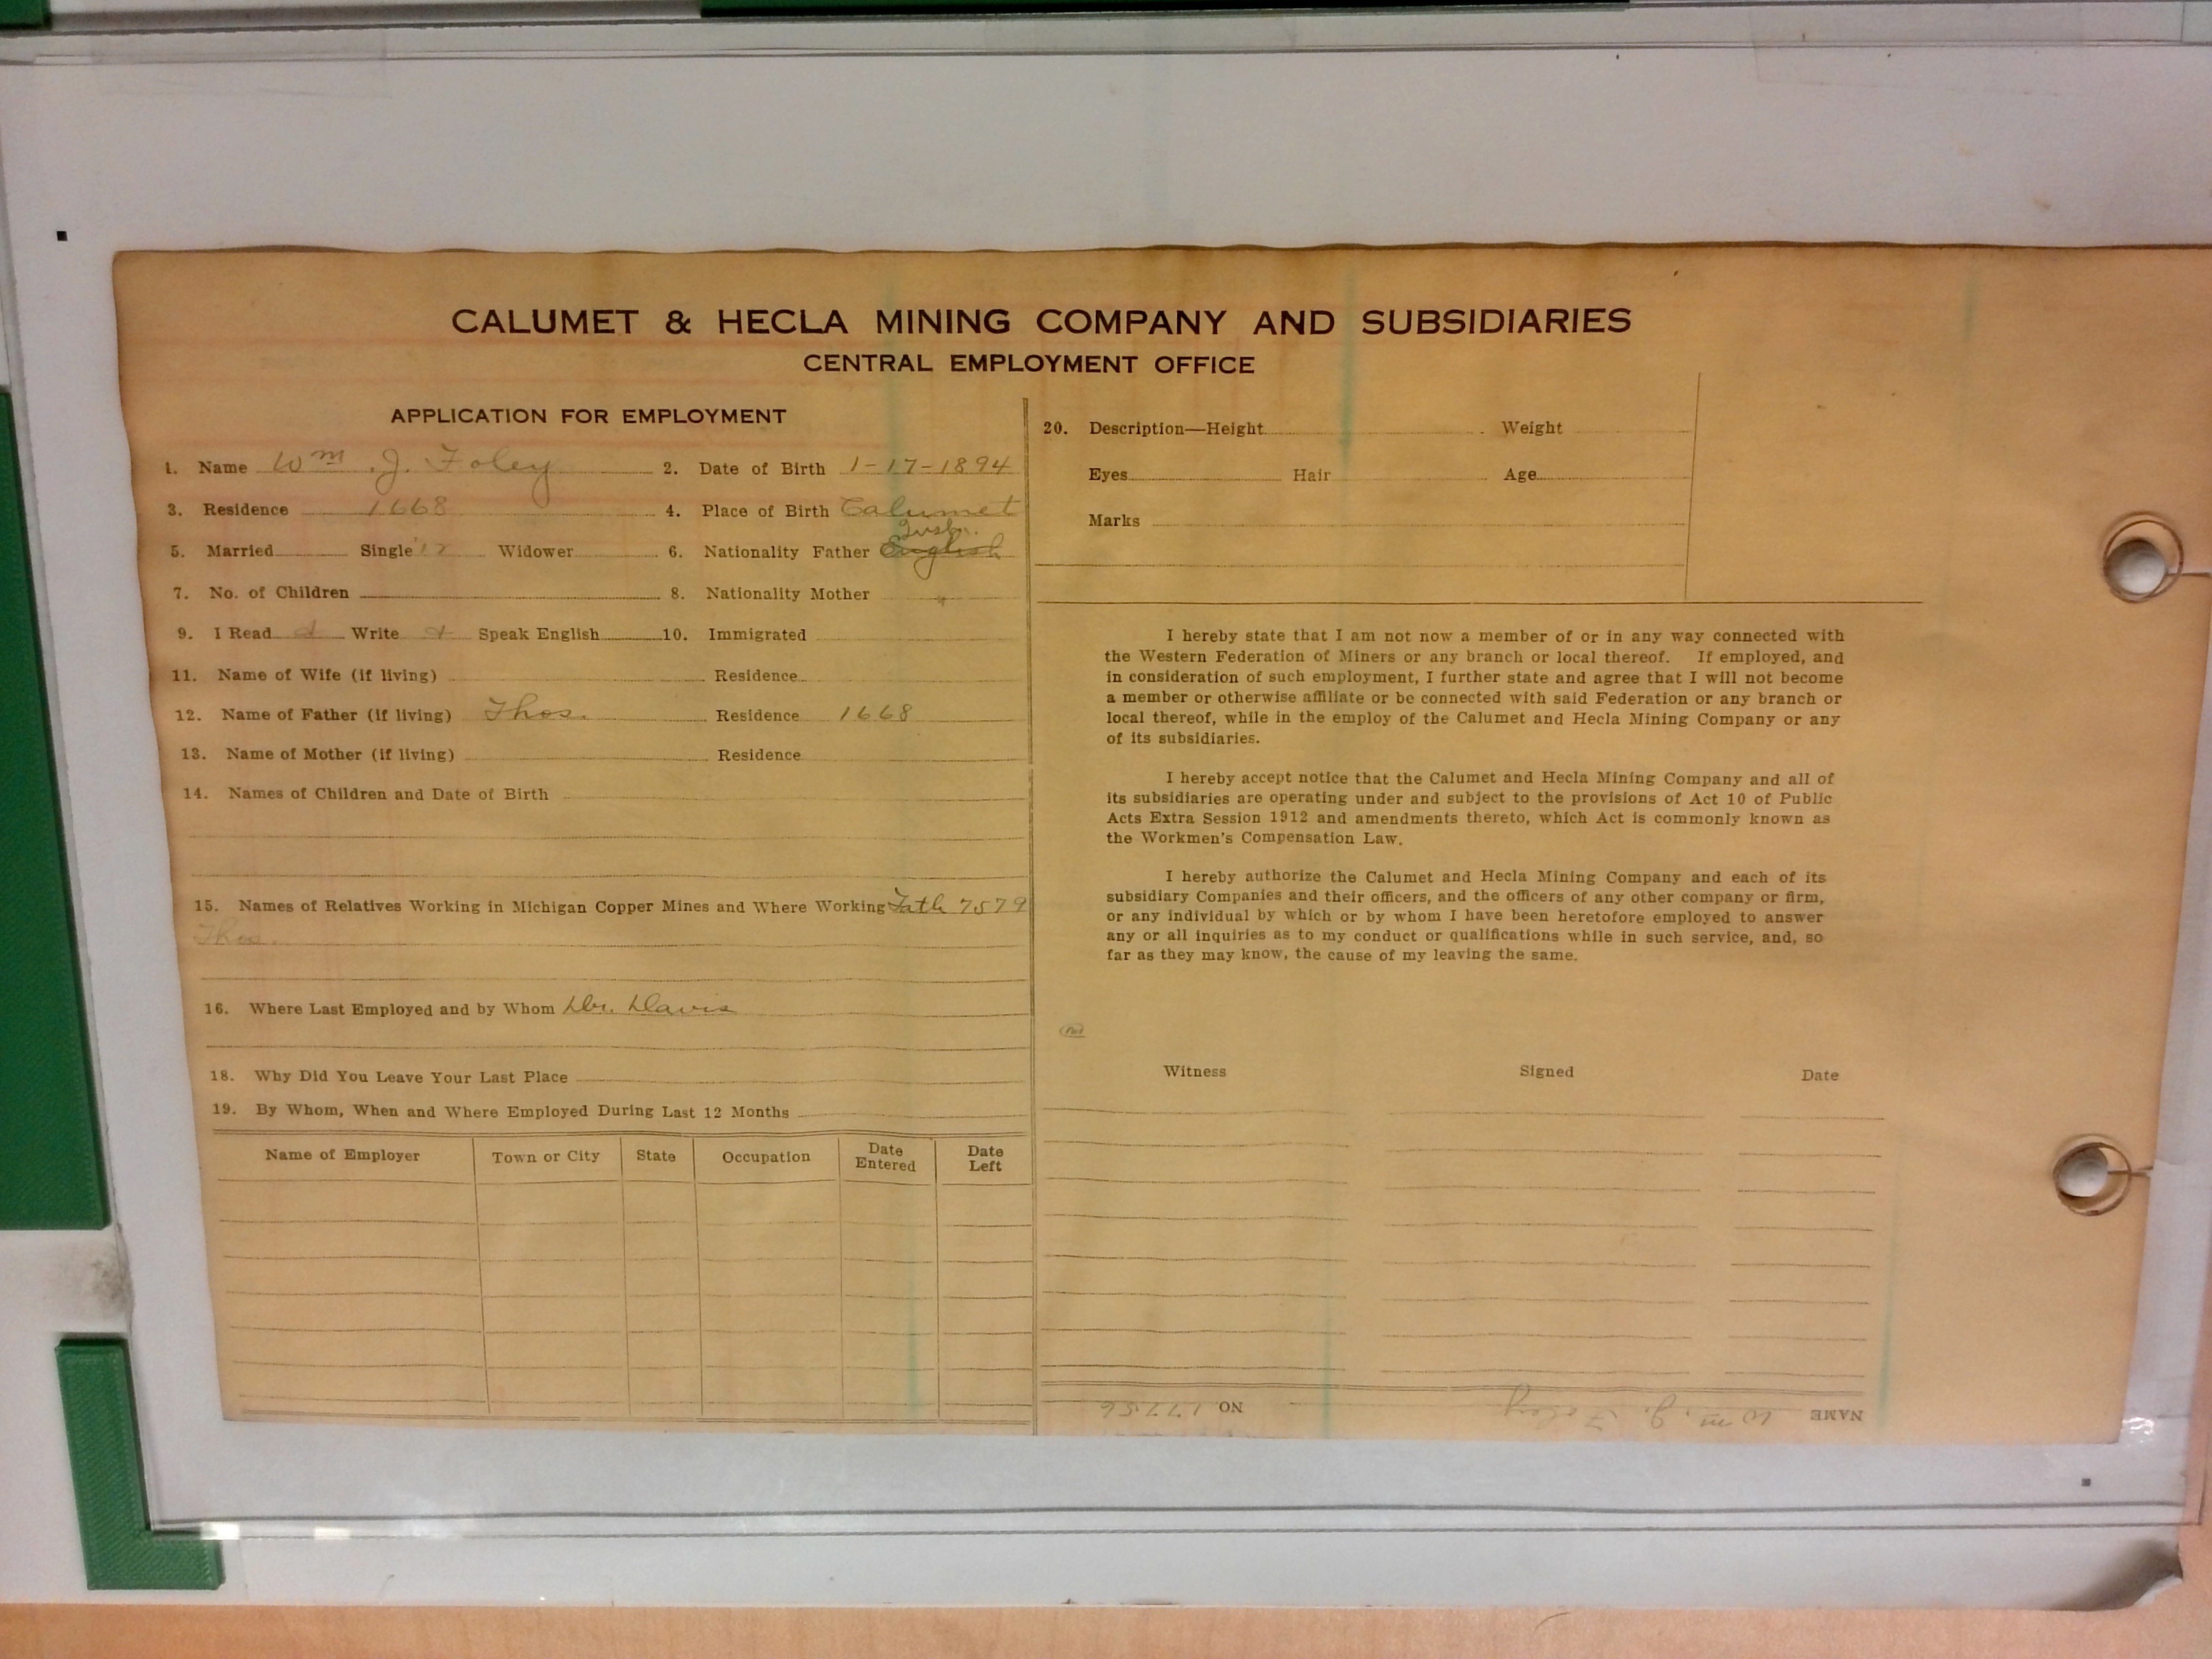 CALUMET & HECLA MINING COMPANY AND SUBSIDIARIES
CENTRAL EMPLOYMENT OFFICE
APPLICATION FOR EMPLOYMENT
1. Name Wm. J. Foley 2. Date of Birth 1-17-1894
3. Residence 1668 4. Place of Birth Calumet
5. Married Single Widower 6. Nationality Father English
7. No. of Children 8. Nationality Mother "
9. I Read Write Speak English 10. Immigrated
11. Name of Wife (if living) Residence
12. Name of Father (if living) Thos. Residence 1668
13. Name of Mother (if living) Residence
14. Names of Children and Date of Birth
15. Names of Relatives Working in Michigan Copper Mines and Where Working Fath 7579
Thos.
16. Where Last Employed and by Whom Dr. Davis
18. Why Did You Leave Your Last Place
19. By Whom, When and Where Employed During Last 12 Months
Name of Employer Town or City State Occupation Date Entered Date Left
20. Description—Height Weight
Eyes Hair Age
Marks
I hereby state that I am not now a member of or in any way connected with
the Western Federation of Miners or any branch or local thereof. If employed, and
in consideration of such employment, I further state and agree that I will not become
a member or otherwise affiliate or be connected with said Federation or any branch or
local thereof, while in the employ of the Calumet and Hecla Mining Company or any
of its subsidiaries.
I hereby accept notice that the Calumet and Hecla Mining Company and all of
its subsidiaries are operating under and subject to the provisions of Act 10 of Public
Acts Extra Session 1912 and amendments thereto, which Act is commonly known as
the Workmen's Compensation Law.
I hereby authorize the Calumet and Hecla Mining Company and each of its
subsidiary Companies and their officers, and the officers of any other company or firm,
or any individual by which or by whom I have been heretofore employed to answer
any or all inquiries as to my conduct or qualifications while in such service, and, so
far as they may know, the cause of my leaving the same.
Witness Signed Date
NAME Wm. J. Foley NO 17756